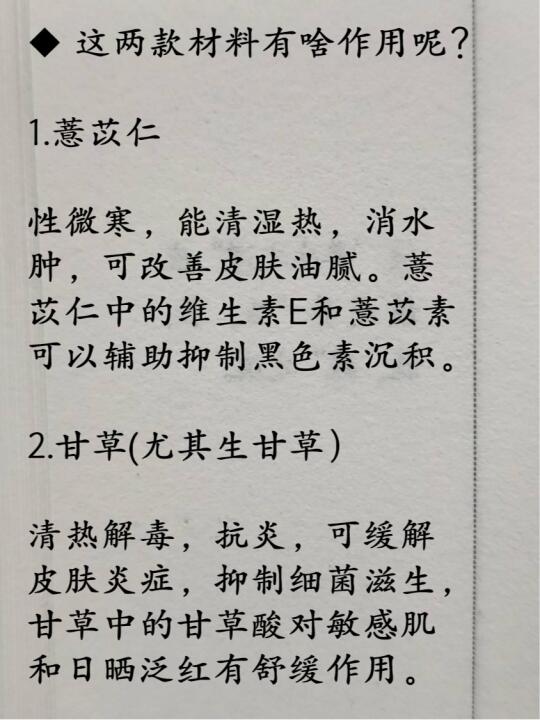 ◆ 这两款材料有啥作用呢？
1.薏苡仁
性微寒，能清湿热，消水
肿，可改善皮肤油腻。薏
苡仁中的维生素E和薏苡素
可以辅助抑制黑色素沉积。
2.甘草(尤其生甘草）
清热解毒，抗炎，可缓解
皮肤炎症，抑制细菌滋生，
甘草中的甘草酸对敏感肌
和日晒泛红有舒缓作用。